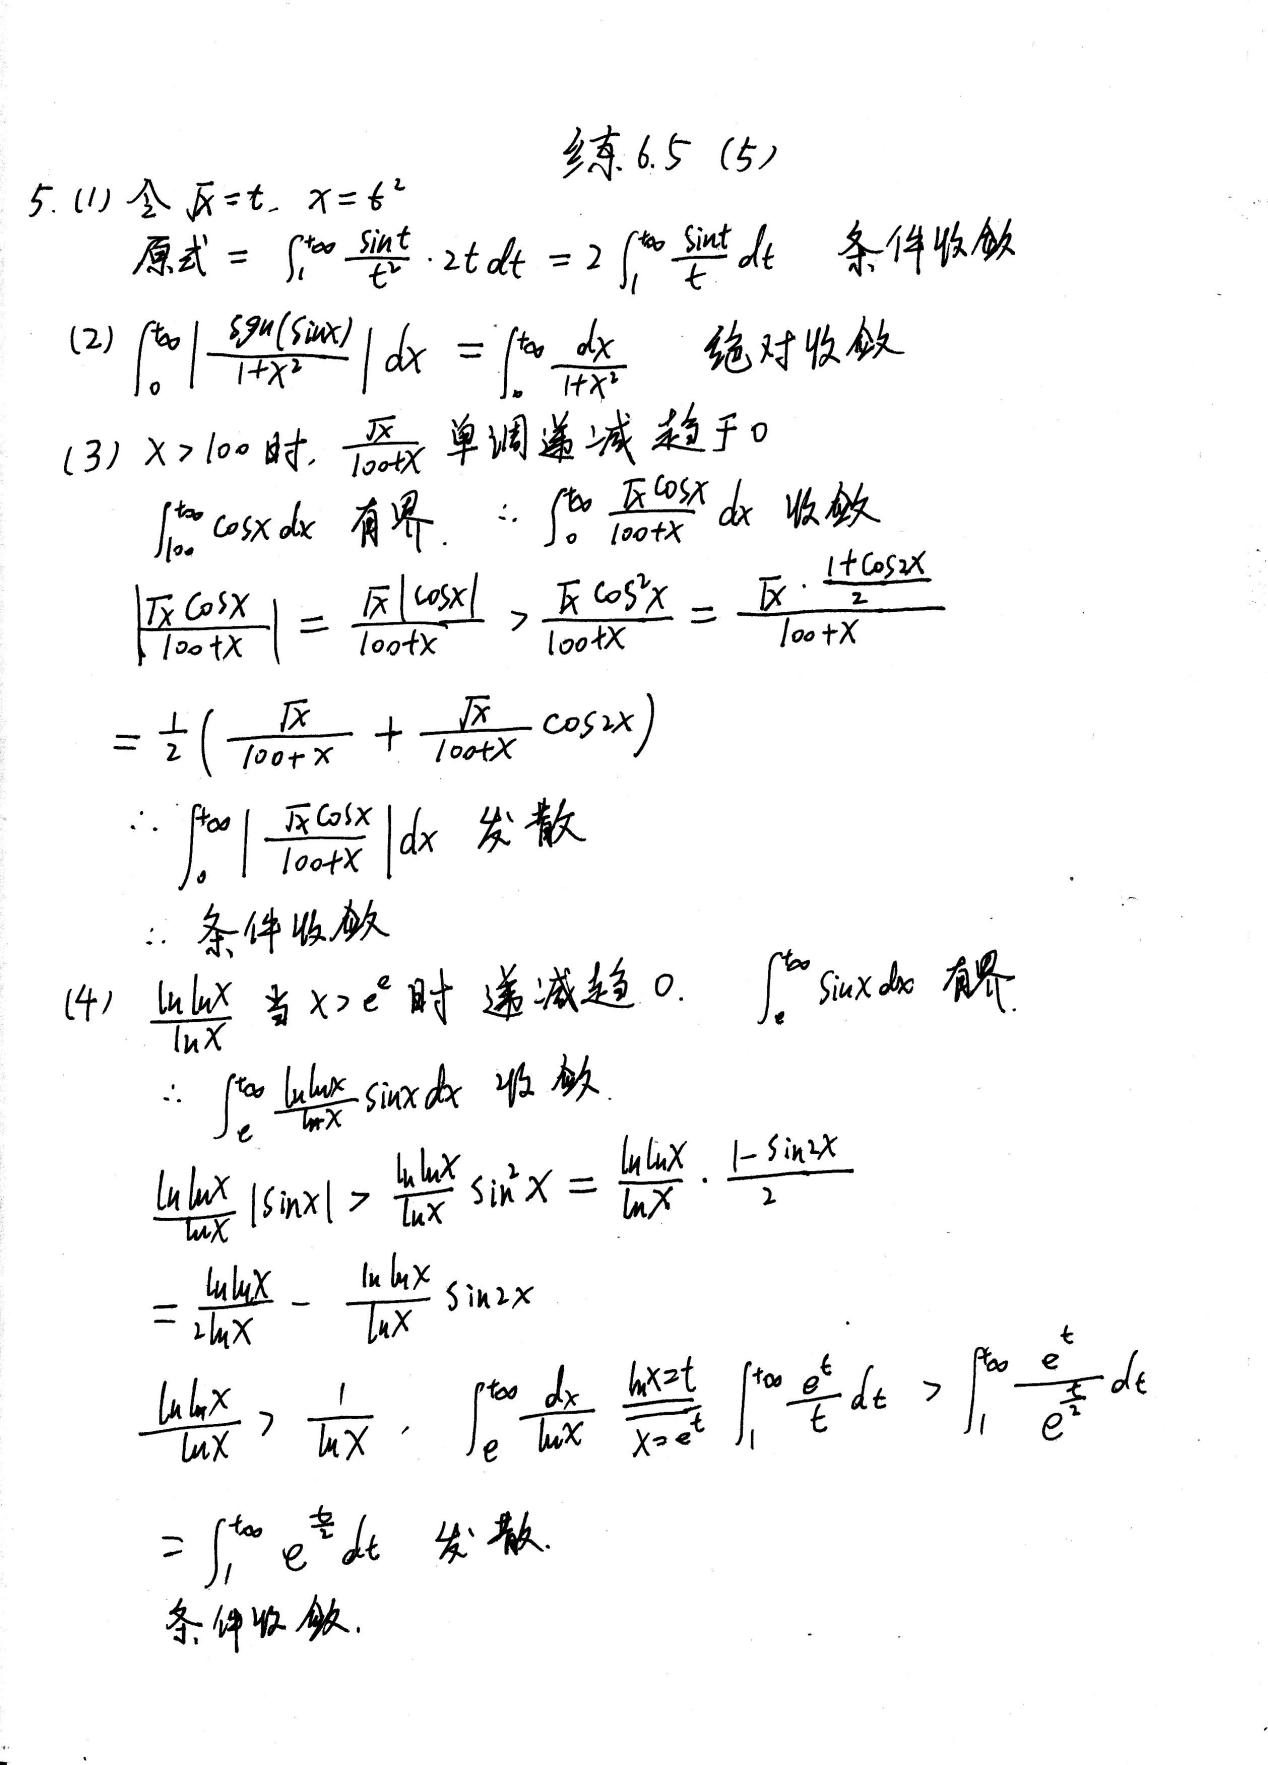 练6.5 (5)
5. (1) 令 √x = t. x = t²
原式 = ∫₁^{+∞} \frac{sint}{t²} · 2t dt = 2 ∫₁^{+∞} \frac{sint}{t} dt 条件收敛
(2) ∫₀^{+∞} | \frac{sgn(sinx)}{1+x²} | dx = ∫₀^{+∞} \frac{dx}{1+x²} 绝对收敛
(3) x > 100 时. \frac{√x}{100+x} 单调递减 趋于 0
∫_{100}^{+∞} cosx dx 有界. ∴ ∫₀^{+∞} \frac{√x cosx}{100+x} dx 收敛
| \frac{√x cosx}{100+x} | = \frac{√x |cosx|}{100+x} > \frac{√x cos²x}{100+x} = \frac{√x · \frac{1+cos2x}{2}}{100+x}
= \frac{1}{2} ( \frac{√x}{100+x} + \frac{√x}{100+x} cos2x )
∴ ∫₀^{+∞} | \frac{√x cosx}{100+x} | dx 发散
∴ 条件收敛
(4) \frac{ln lnx}{lnx} 当 x > e^e 时 递减趋 0. ∫_e^{+∞} sinx dx 有界.
∴ ∫_e^{+∞} \frac{ln lnx}{lnx} sinx dx 收敛.
\frac{ln lnx}{lnx} |sinx| > \frac{ln lnx}{lnx} sin²x = \frac{ln lnx}{lnx} · \frac{1-sin2x}{2}
= \frac{ln lnx}{2lnx} - \frac{ln lnx}{lnx} sin2x
\frac{ln lnx}{lnx} > \frac{1}{lnx} , ∫_e^{+∞} \frac{dx}{lnx} \xlongequal[x=e^t]{lnx=t} ∫₁^{+∞} \frac{e^t}{t} dt > ∫₁^{+∞} \frac{e^t}{e^{\frac{t}{2}}} dt
= ∫₁^{+∞} e^{\frac{t}{2}} dt 发散.
条件收敛.